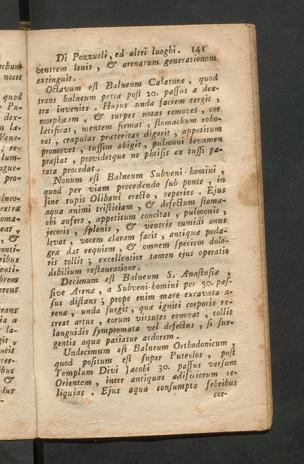 Di Pozzuoli, ed altri luoghi. 141
ventrem lenit, & arenarum generationem
extinguit.
Octavum est Balneum Calaturæ, quod
trans balneum petræ post 20. passus a dex-
tra invenies. Hujus unda faciem tergit,
morphæam, & turpes notas removet, cor
lætificat, mentem firmat, stomachum robo-
rat, crapulas præteritas digerit, appetitum
promovet, tussim abigit, pulmoni levamen
præstat, provideque ne phtisis ex tussi pa-
rata procedat.
Nonum est Balneum Subveni-homini,
quod per viam procedendo sub ponte, in
sine rupis Olibani erecto, reperies. Ejus
aqua animi tristitiam, & defectum stoma-
chi aufert, appetitum concitat, pulmonis,
jecoris, splenis, & ventris tumidi onus
levat, vocem claram facit, antiqua poda-
gre dat requiem, & omnem speciem dolo-
ris tollit; excellentior tamen ejus operatio
debilium restauratione.
Decimum est Balneum S. Anastasiæ,
sive Arenæ, a Subveni-homini per 50. pas-
sus distans; prope enim mare excavata a-
rena, unda surgit, qua igniti corporis re-
creat artus, eorum virtutes renovat, tollit
languidis symptomata vel defectus, si sur-
gentis aquæ patiatur ardorem.
Undecimum est Balneum Orthodonicum,
quod positum est super Puteolos, post
Templum Divi Jacobi 30. passus versum
Orientem, inter antiquas ædificiorum re-
liquias. Ejus aqua consumpta febribus
cor-